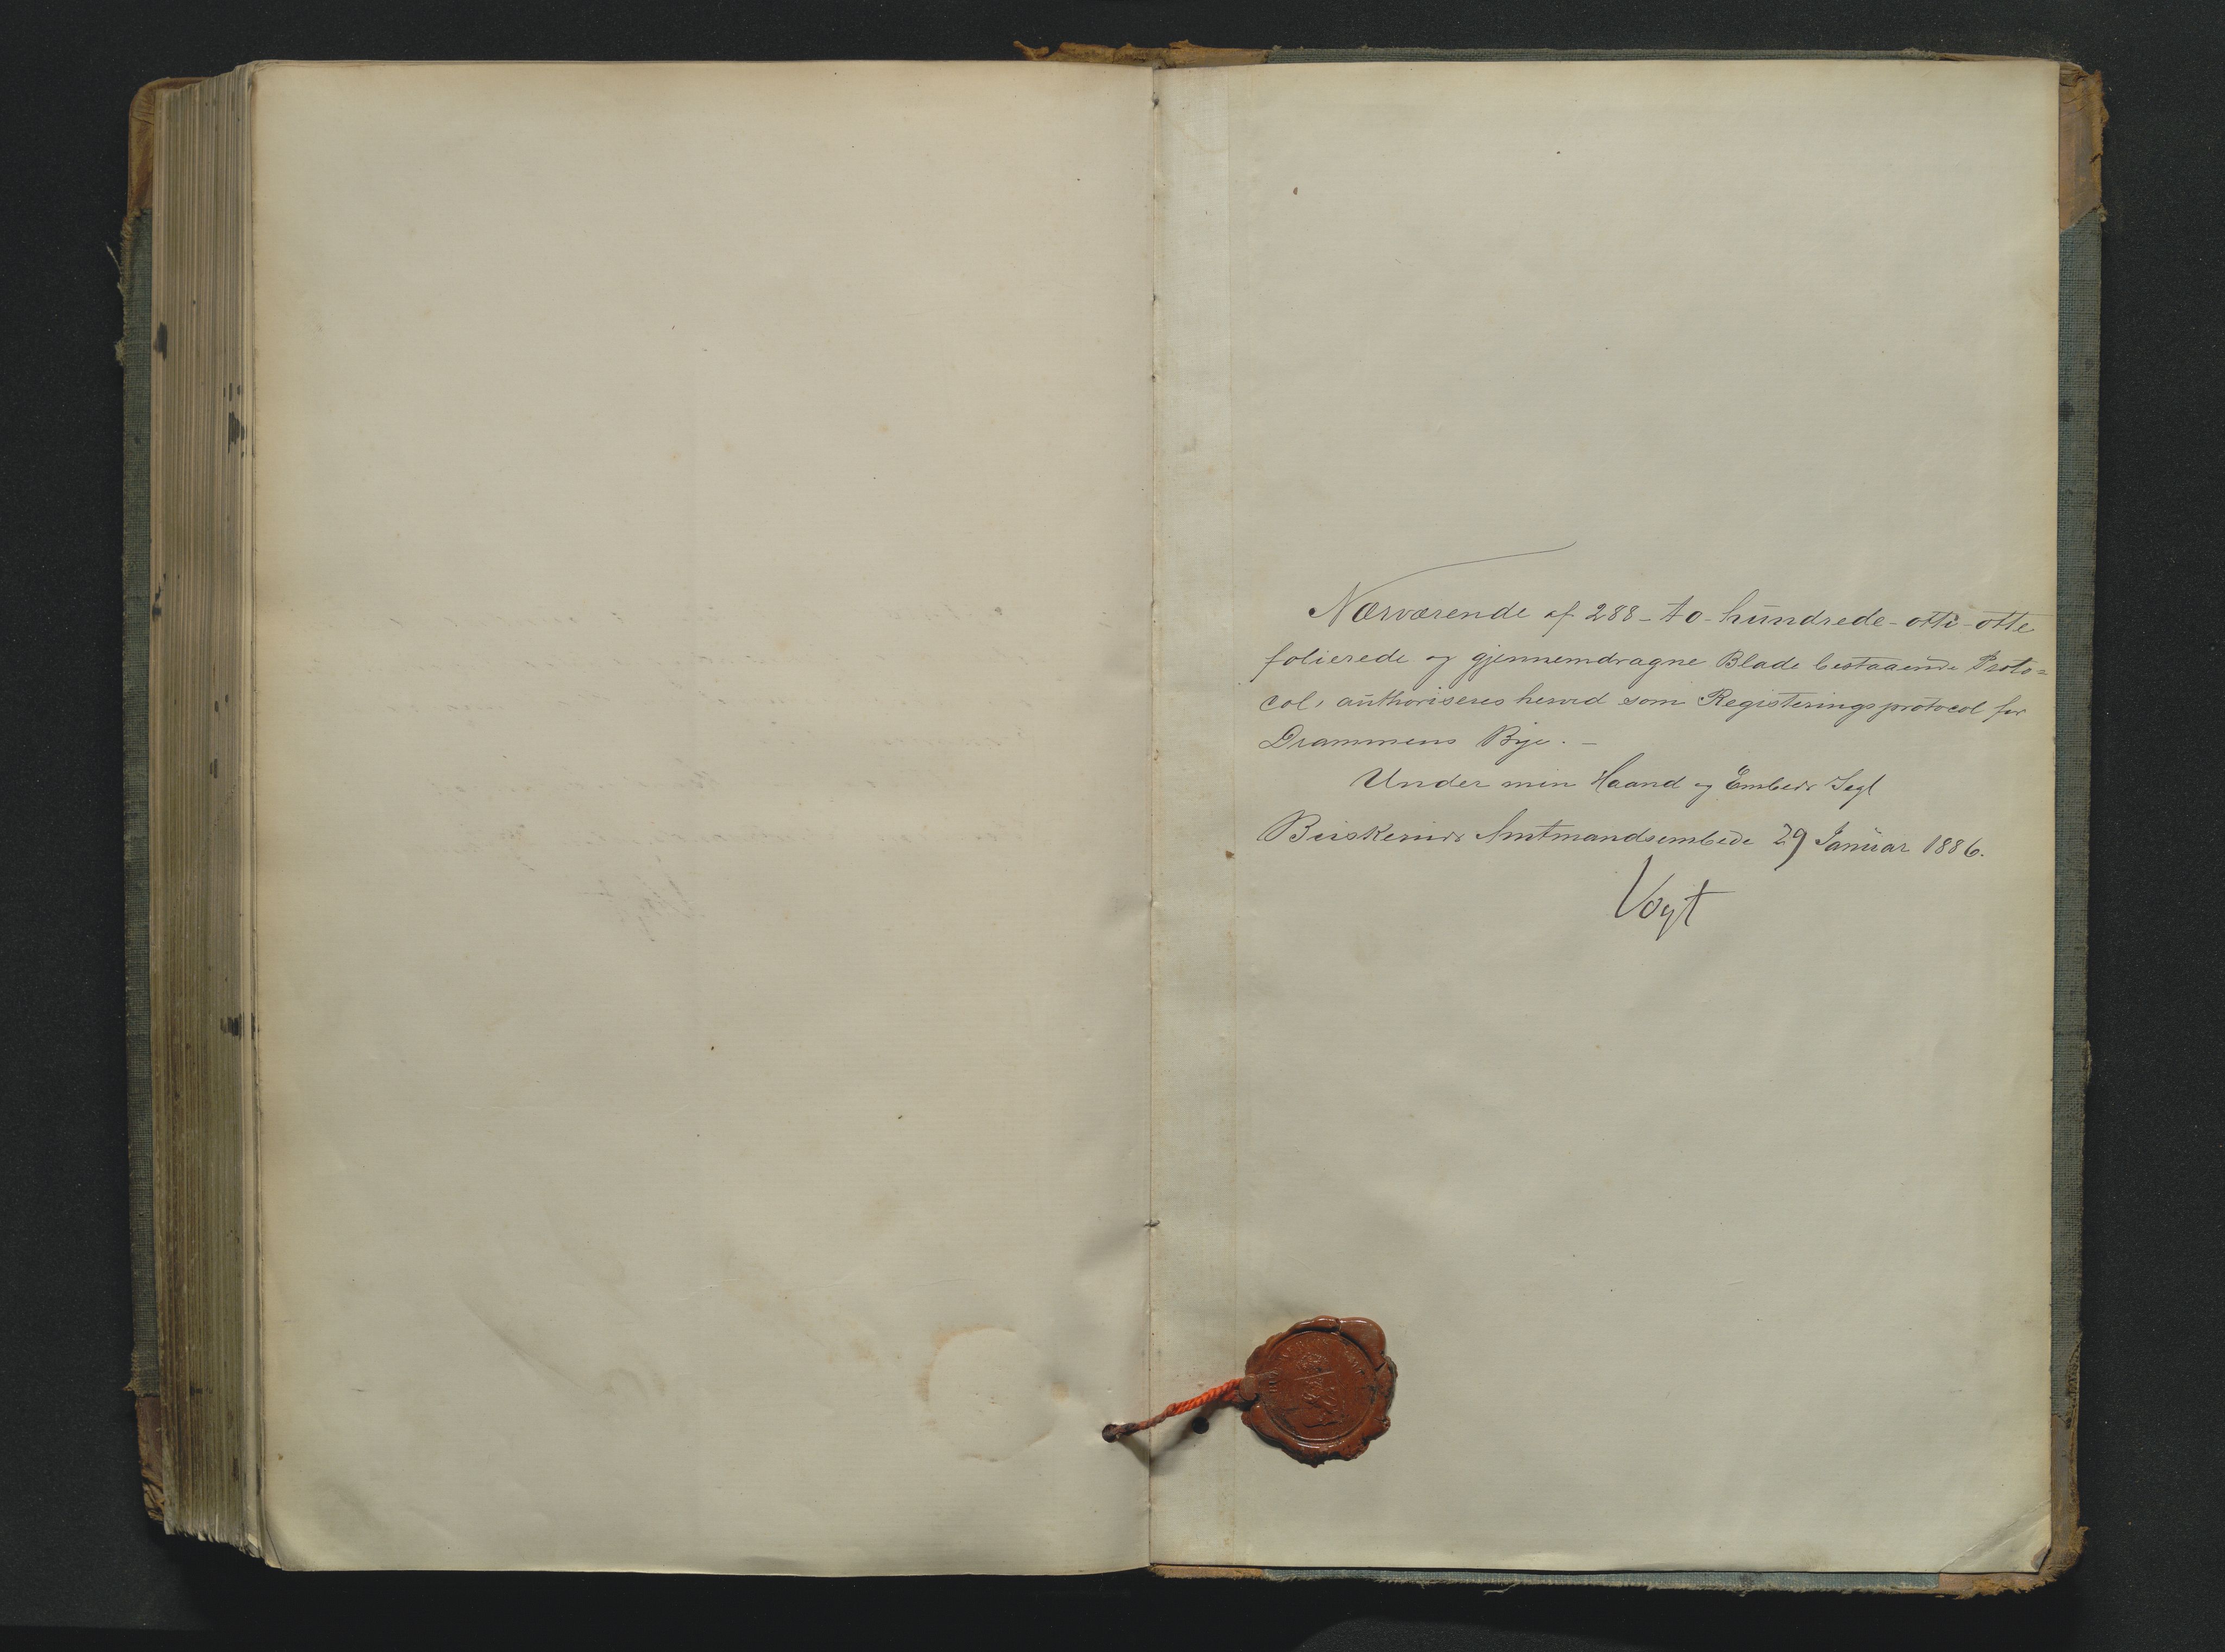 Nærværende af 288 - to - hundrede - otti - otte
folierede og gjennemdragne Blade bestaaende Proto=
col, authoriseres herved som Registeringsprotocol for
Drammens Bye. -
Under min Haand og Embeds Segl
Buskeruds Amtmandsembede 29 Januar 1886.
Vogt